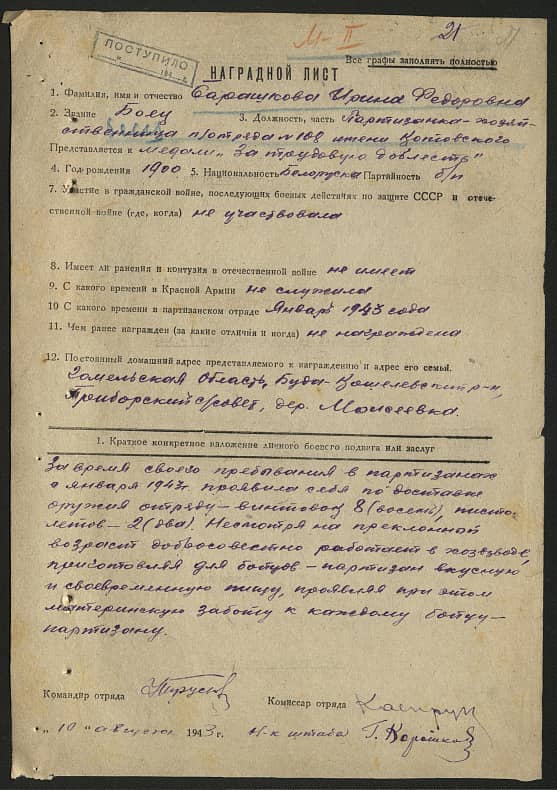 М-II
21
ПОСТУПИЛО
Все графы заполнять полностью
НАГРАДНОЙ ЛИСТ
1. Фамилия, имя и отчество Сарашкова Ирина Федоровна
2. Звание Боец 3. Должность, часть Партизанка-хозяй-
ственница п/отряда №108 имени Котовского
Представляется к медали „За трудовую доблесть"
4. Год рождения 1900 5. Национальность Белоруска Партийность б/п
7. Участие в гражданской войне, последующих боевых действиях по защите СССР и отече-
ственной войне (где, когда) не участвовала
8. Имеет ли ранения и контузия в отечественной войне не имеет
9. С какого времени в Красной Армии не служила
10 С какого времени в партизанском отряде Январь 1943 года
11. Чем ранее награжден (за какие отличия и когда) не награждена
12. Постоянный домашний адрес представляемого к награждению и адрес его семьи.
Гомельская область, Буда-Кошелевский р-н,
Приборский с/совет, дер. Моисеевка.
1. Краткое конкретное изложение личного боевого подвига или заслуг
За время своего пребывания в партизанах
с января 1943г. проявила себя по доставке
оружия отряду – винтовок 8 (восемь), писто-
летов – 2 (два). Несмотря на преклонный
возраст добросовестно работает в хозвзводе,
приготовляя для бойцов – партизан вкусную
и своевременную пищу, проявляя при этом
материнскую заботу к каждому бойцу-
партизану.
Командир отряда
Комиссар отряда
„10" августа 1943 г. Н-к штаба Г. Корошков